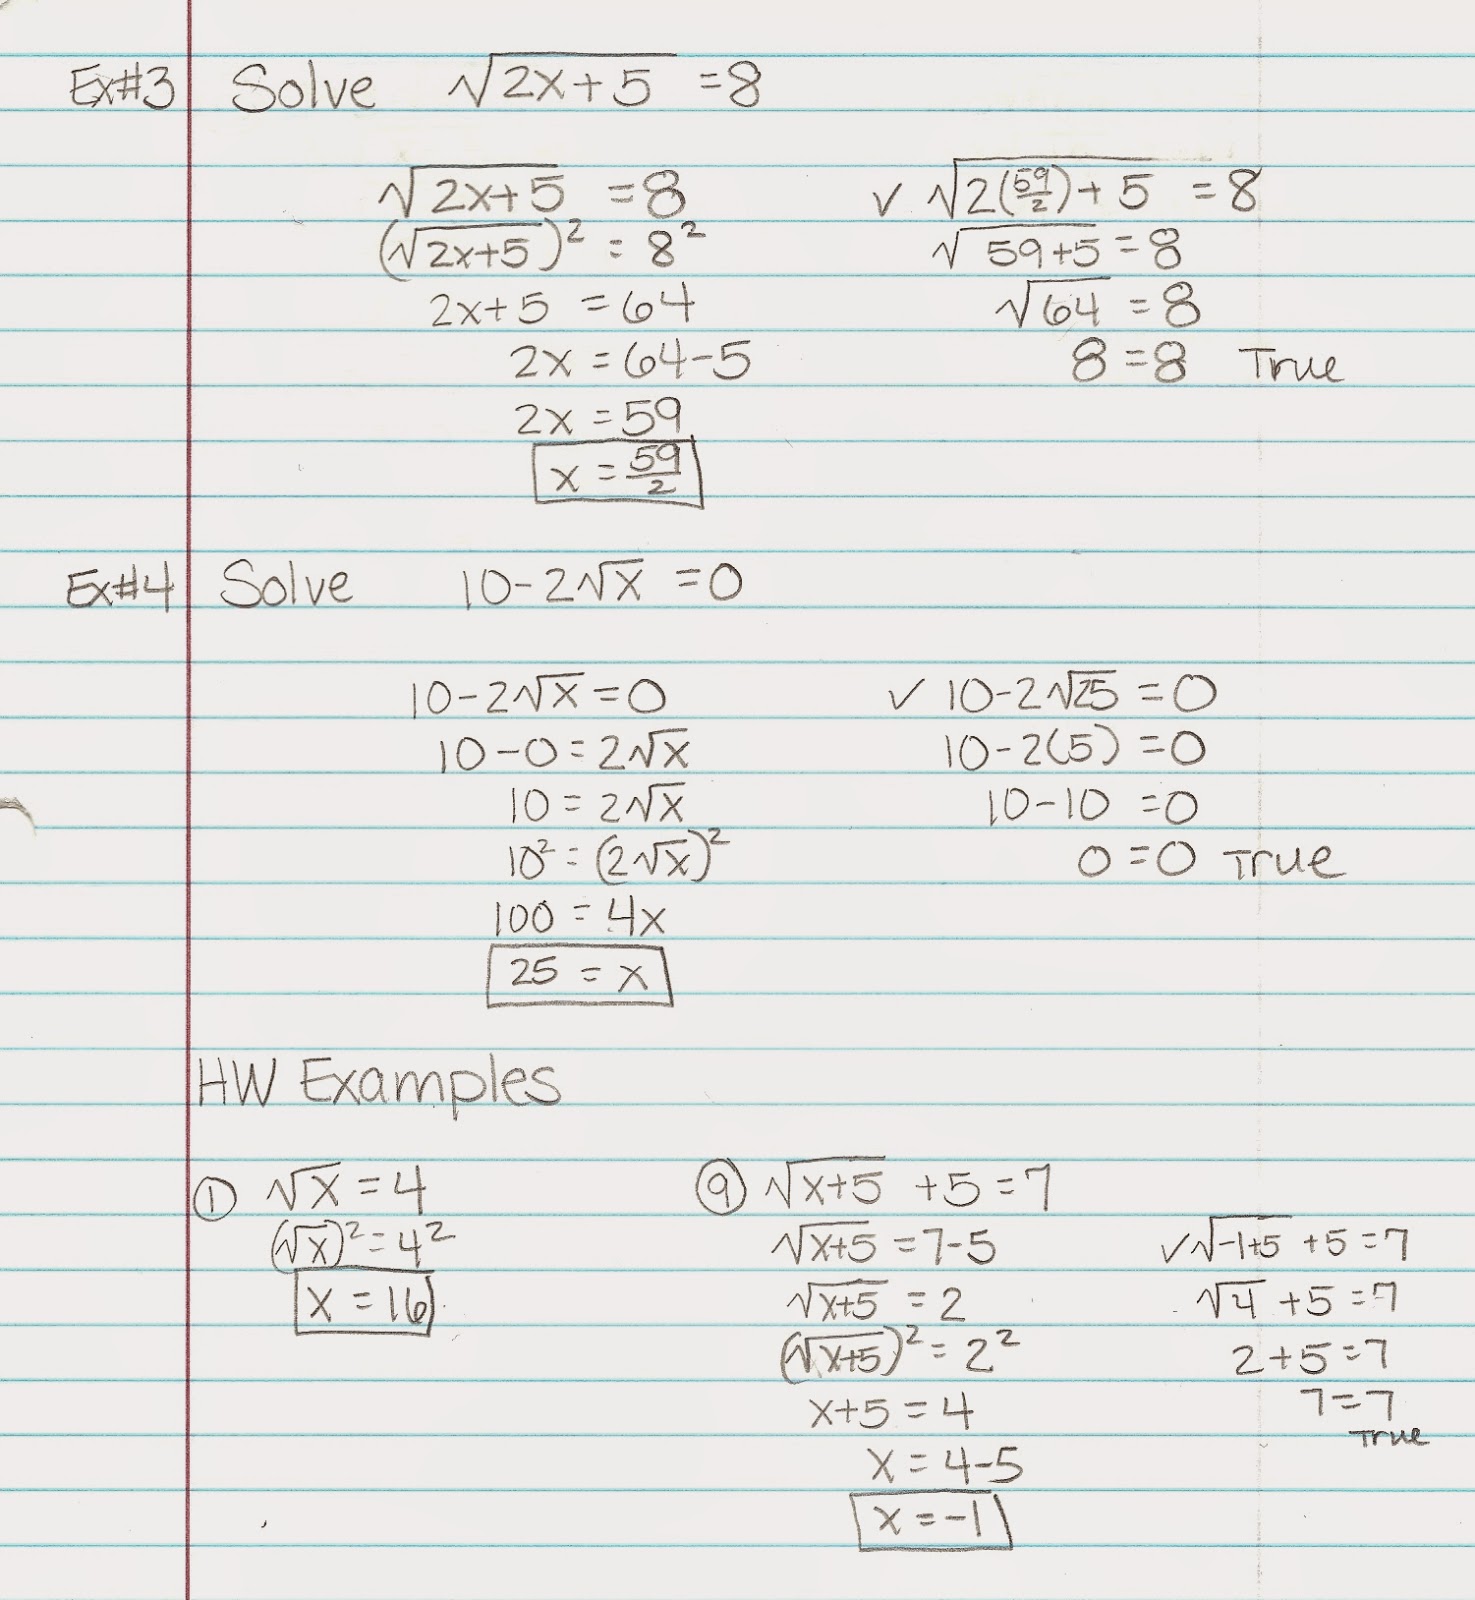 Ex#3 Solve √(2x+5) = 8
√(2x+5) = 8
(√(2x+5))² = 8²
2x+5 = 64
2x = 64-5
2x = 59
x = 59/2
✓ √(2(59/2)+5) = 8
√(59+5) = 8
√64 = 8
8 = 8 True
Ex#4 Solve 10-2√x = 0
10-2√x = 0
10-0 = 2√x
10 = 2√x
10² = (2√x)²
100 = 4x
25 = x
✓ 10-2√25 = 0
10-2(5) = 0
10-10 = 0
0 = 0 True
HW Examples
① √x = 4
(√x)² = 4²
x = 16
⑨ √(x+5) + 5 = 7
√(x+5) = 7-5
√(x+5) = 2
(√(x+5))² = 2²
x+5 = 4
x = 4-5
x = -1
✓ √(-1+5) + 5 = 7
√4 + 5 = 7
2+5 = 7
7 = 7
True